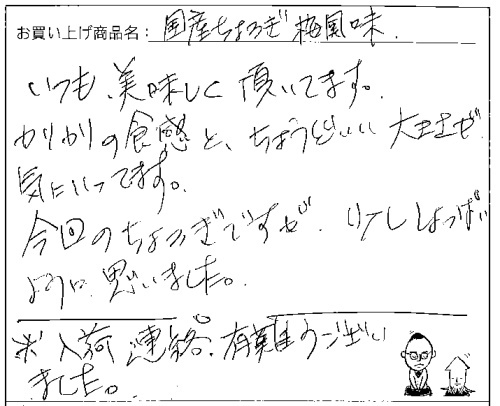 お買い上げ商品名：国産ちょろぎ梅風味.
いつも、美味しく頂いてます。
かりかりの食感と、ちょうどいい大きさが
気にいってます。
今回のちょろぎですが、少ししょっぱい
ように思いました。
※入荷連絡、有難うございい
ました。